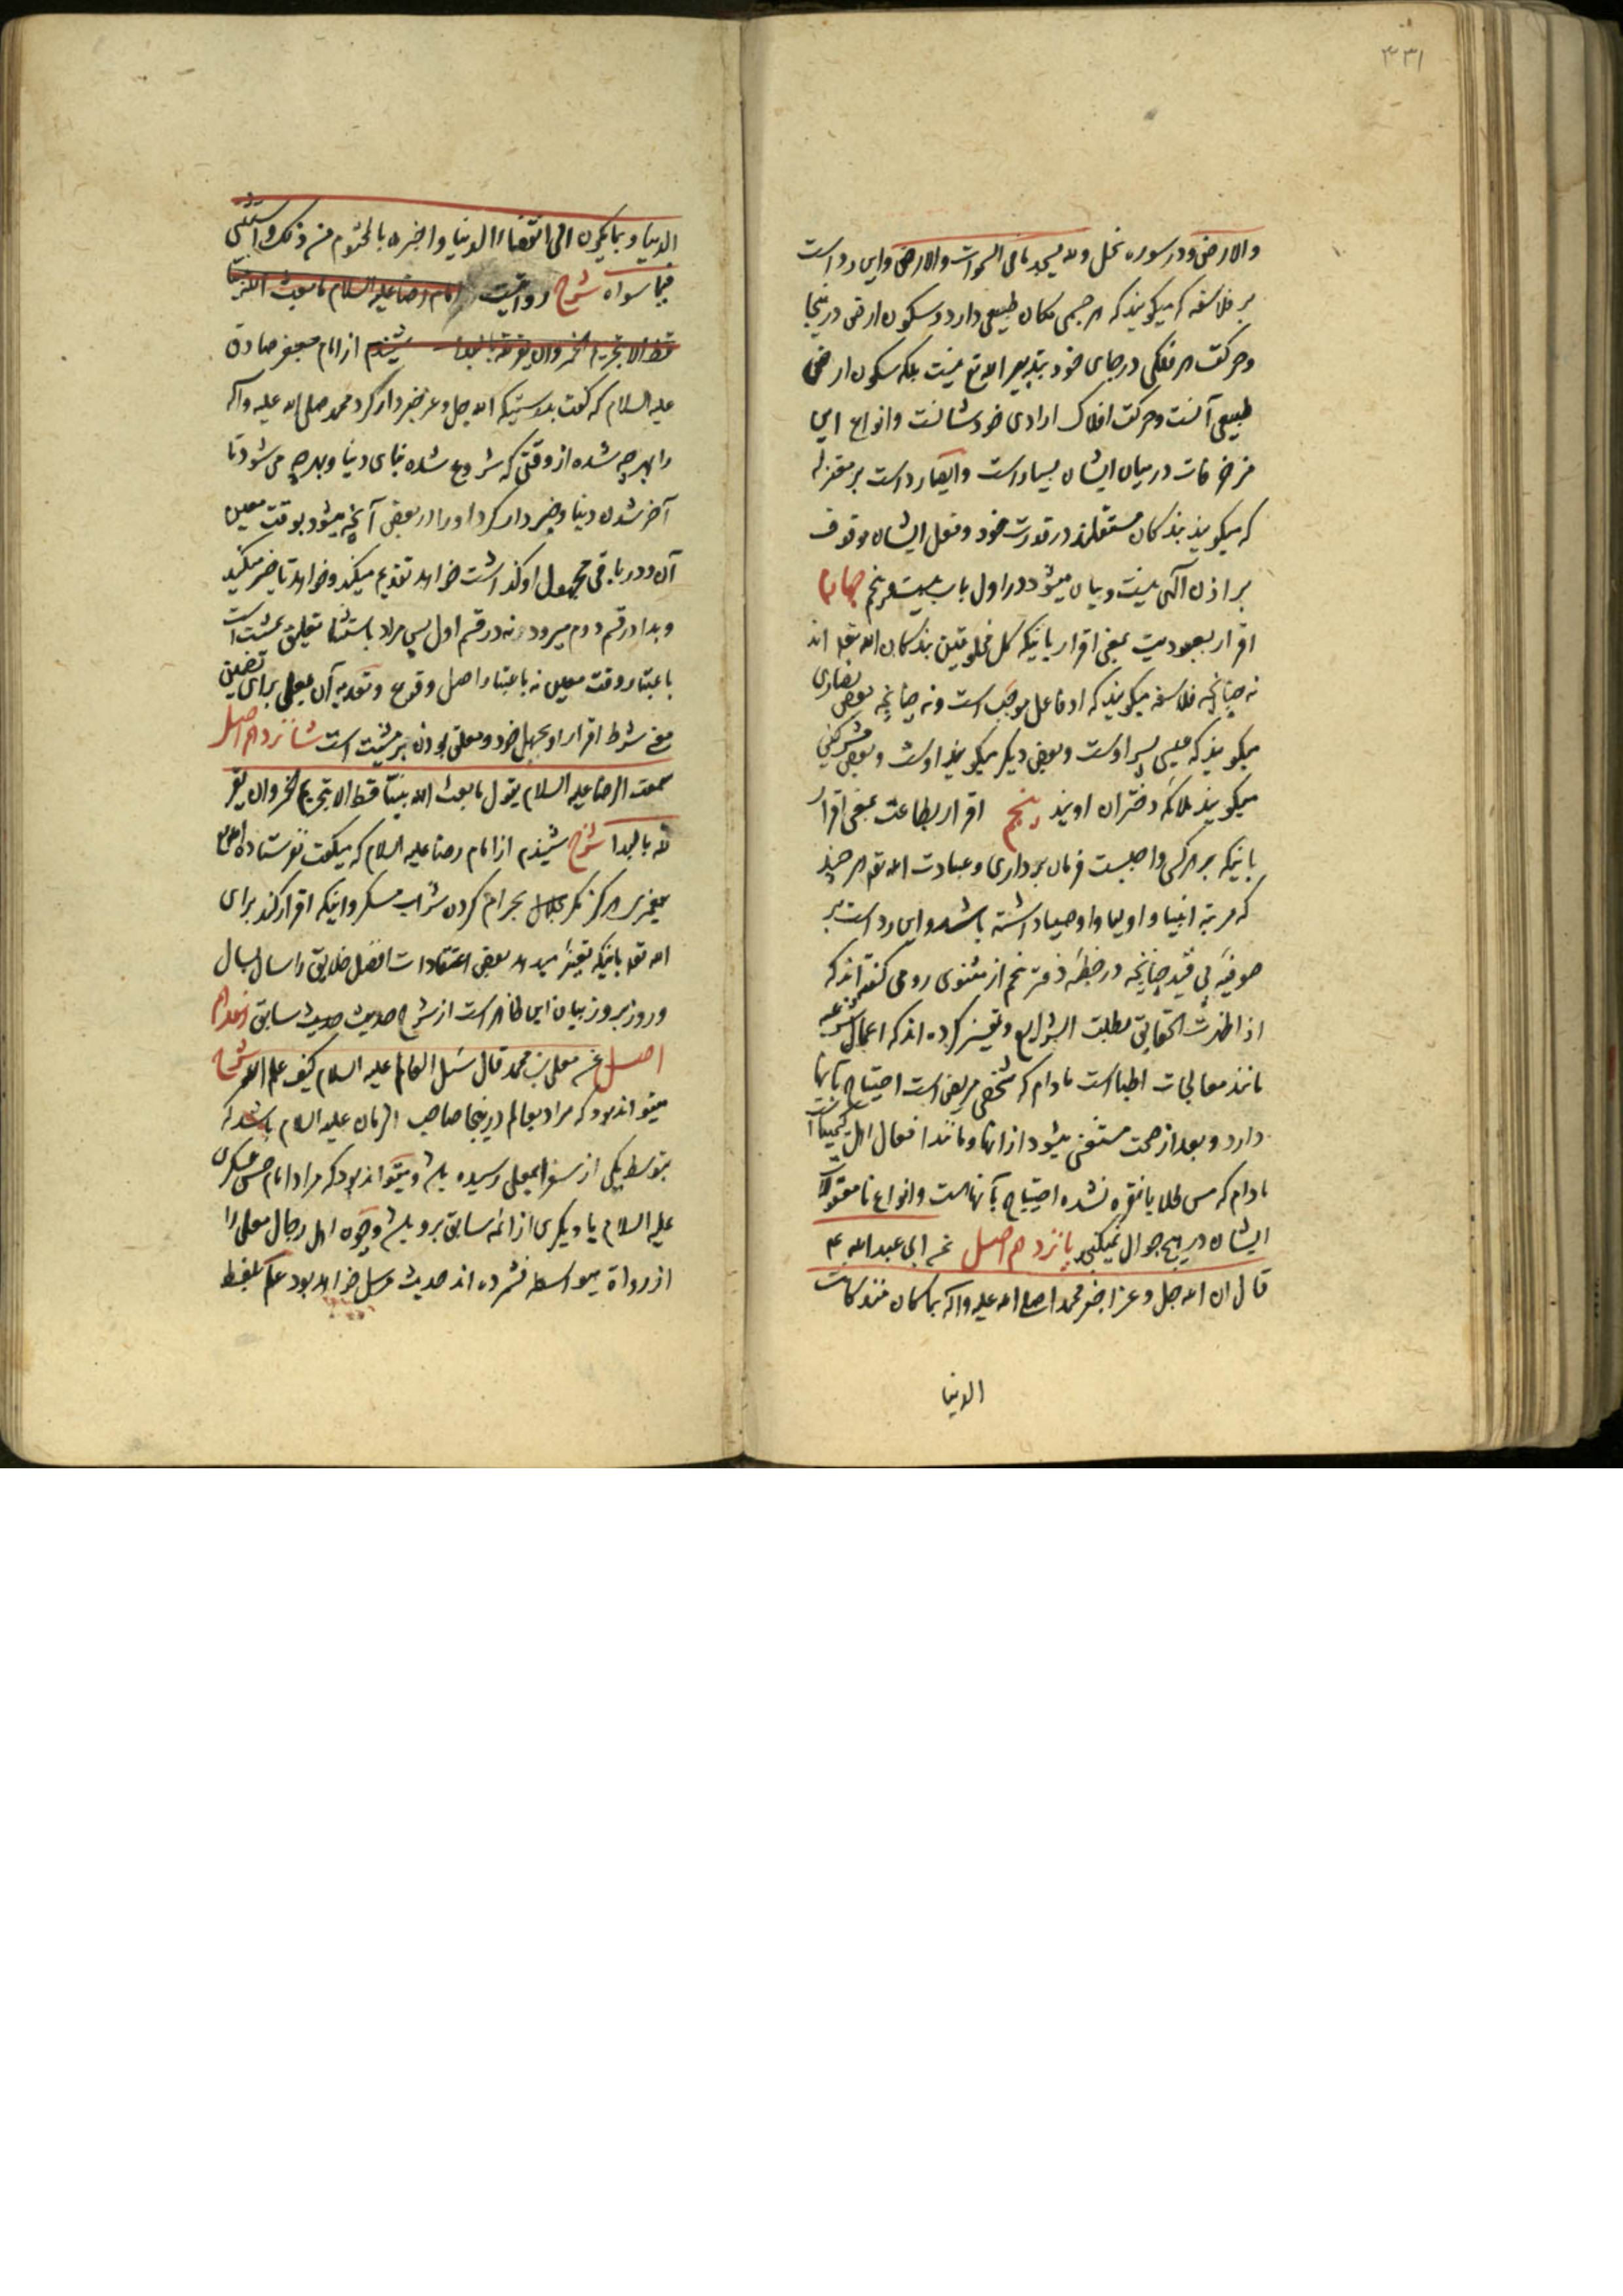 ۳۳۱
والارض و در سوره نحل ولله یسجد ما فی السموات والارض و این رد است
بر فلاسفه که میگویند که هر جسمی مکان طبیعی دارد و سکون ارض در اینجا
و حرکت هر فلکی در جای خود بتدبیر الله تع نیست بلکه سکون ارض
طبیعی آنست و حرکت افلاک ارادی خودشانست و انواع این
مزخرفات در میان ایشان بسیار است و ایضا رد است بر معتزله
که میگویند بندکان مستقلند در قدرت خود و فعل ایشان موقوف
بر اذن آلهی نیست و بیان میشود در اول باب بیست و پنجم چهارم
اقرار بعبودیت بمعنی اقرار باینکه کل مخلوقین بندکان الله تعالی اند
نه چنانچه فلاسفه میگویند که او فاعل موجب است و نه چنانچه بعض نصاری
میگویند که عیسی پسر اوست و بعض دیگر میگویند اوست و بعض مشرکین
میگویند ملائکه دختران اویند پنجم اقرار بطاعت بمعنی اقرار
باینکه بر هر کس واجبست فرمان برداری و عبادت الله تعالی هر چند
که مرتبه انبیا و اولیا و اوصیا داشته باشد و این رد است بر
صوفیه بی قید چنانچه در خطبه دفتر پنجم از مثنوی رومی گفته اند که
اذا ظهرت الحقایق بطلت الشرایع و تفسیر کرده اند که اعمال شرعیه
مانند معالجات اطباست مادام که شخص مریض است احتیاج بآنها
دارد و بعد از صحت مستغنی میشود از آنها و مانند افعال اهل کیمیا است
مادام که مس طلا یا نقره نشده احتیاج بآنهاست و انواع نامعقولات
ایشان در هیچ جوال نمیگنجد پانزدهم اصل عن ابی عبدالله ع
قال ان الله جل و عز اخبر محمدا صلی الله علیه وآله بما کان منذ کانت
الدنیا
الدنیا و بما یکون الی انقضاء الدنیا و اخبره بالمحتوم من ذلک و استثنی
فیما سواه شرح روایتست امام رضا علیه السلام ما بعث الله نبیا
قط الا بتحریم الخمر وان یقر لله بالبداء شنیدم از امام جعفر صادق
علیه السلام که گفت بدرستیکه الله جل و عز خبردار کرد محمد صلی الله علیه وآله
را بهرچه شده از وقتی که شروع شده بنای دنیا و بهرچه می شود تا
آخر شدن دنیا و خبردار کرد او را در بعض آنچه میشود بوقت معین
آن و در باقی مجهول او گذاشت خواهد تقدیم میکند و خواهد تاخیر میکند
و بدا در قسم دوم میرود نه در قسم اول پس مراد باستثنا تعلیق بمشیت است
باعتبار وقت معین نه باعتبار اصل وقوع و تعدیه آن بعلی برای تضمین
معنی شرط اقرار او بجهل خود و معلق بودن بر مشیت است شانزدهم اصل
سمعت الرضا علیه السلام یقول ما بعث الله نبیا قط الا بتحریم الخمر وان یقر
لله بالبداء شرح شنیدم از امام رضا علیه السلام که میگفت نفرستاده الله تعالی
پیغمبری هرگز مگر بحرام کردن شراب مسکر و اینکه اقرار کند برای
الله تعالی باینکه تغییر میدهد بعض اعتقادات افضل خلایق را سال بسال
و روز بروز بیان این ظاهر است از شرح حدیث سابق هفدهم
اصل عن معلی بن محمد قال سئل العالم علیه السلام کیف علم الله شرح
میتواند بود که مراد بعالم در اینجا صاحب الزمان علیه السلام باشد که
بتوسط یکی از سفرا بمعلی رسیده باشد و میتواند بود که مراد امام حسن عسکری
علیه السلام یا دیگری از ائمه سابق برو باشد و چون اهل رجال معلی را
از رواة بیواسطه نشمرده اند حدیث مرسل خواهد بود علم بلفظ